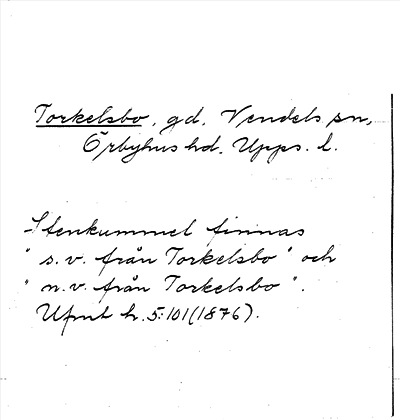 Torkelsbo, gd. Vendels sn,
Örbyhus hd. Upps. l.
Stenkummel finnas
" s.v. från Torkelsbo " och
" n.v. från Torkelsbo ".
Ufmt h. 5:101(1876).